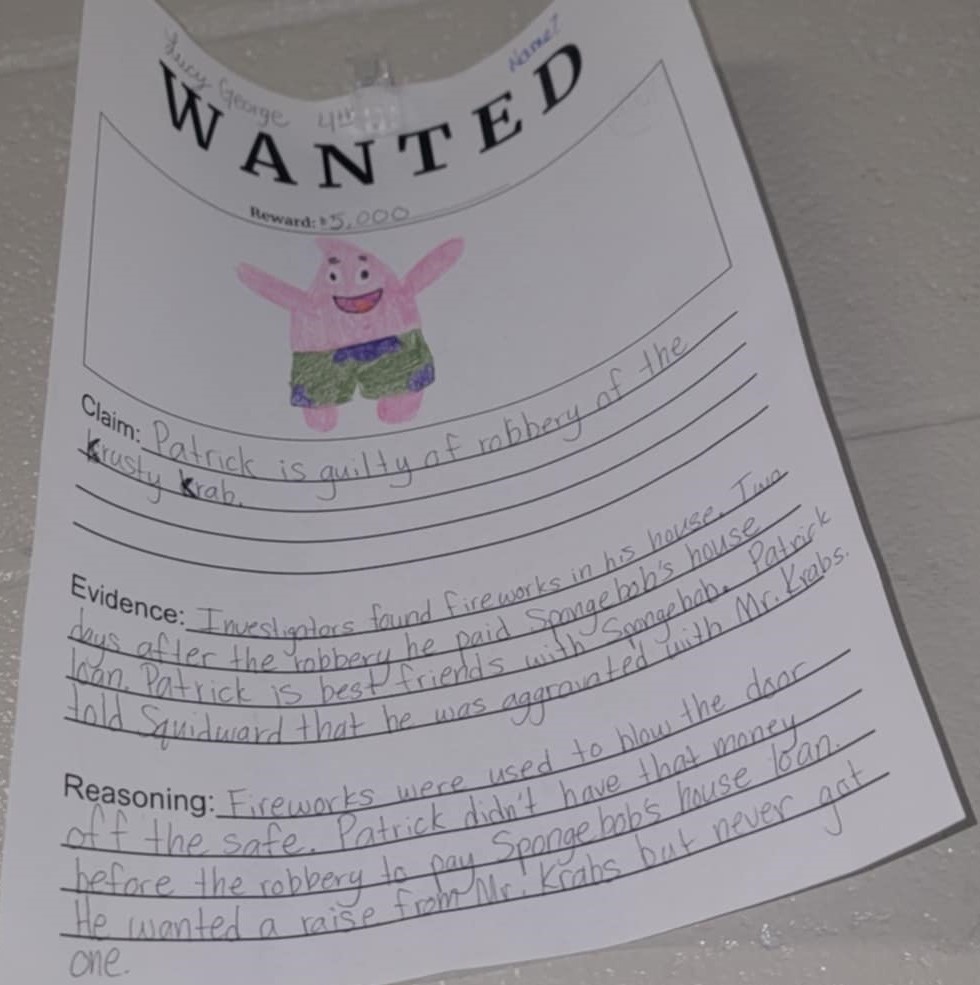 Lucy George 4th
Name?
WANTED
Reward: $5,000
Claim: Patrick is guilty of robbery of the
Krusty Krab.
Evidence: Investigators found fireworks in his house. Two
days after the robbery he paid Spongebob's house
loan. Patrick is best friends with Spongebob. Patrick
told Squidward that he was aggravated with Mr. Krabs.
Reasoning: Fireworks were used to blow the door
off the safe. Patrick didn't have that money
before the robbery to pay Spongebob's house loan.
He wanted a raise from Mr. Krabs but never got
one.